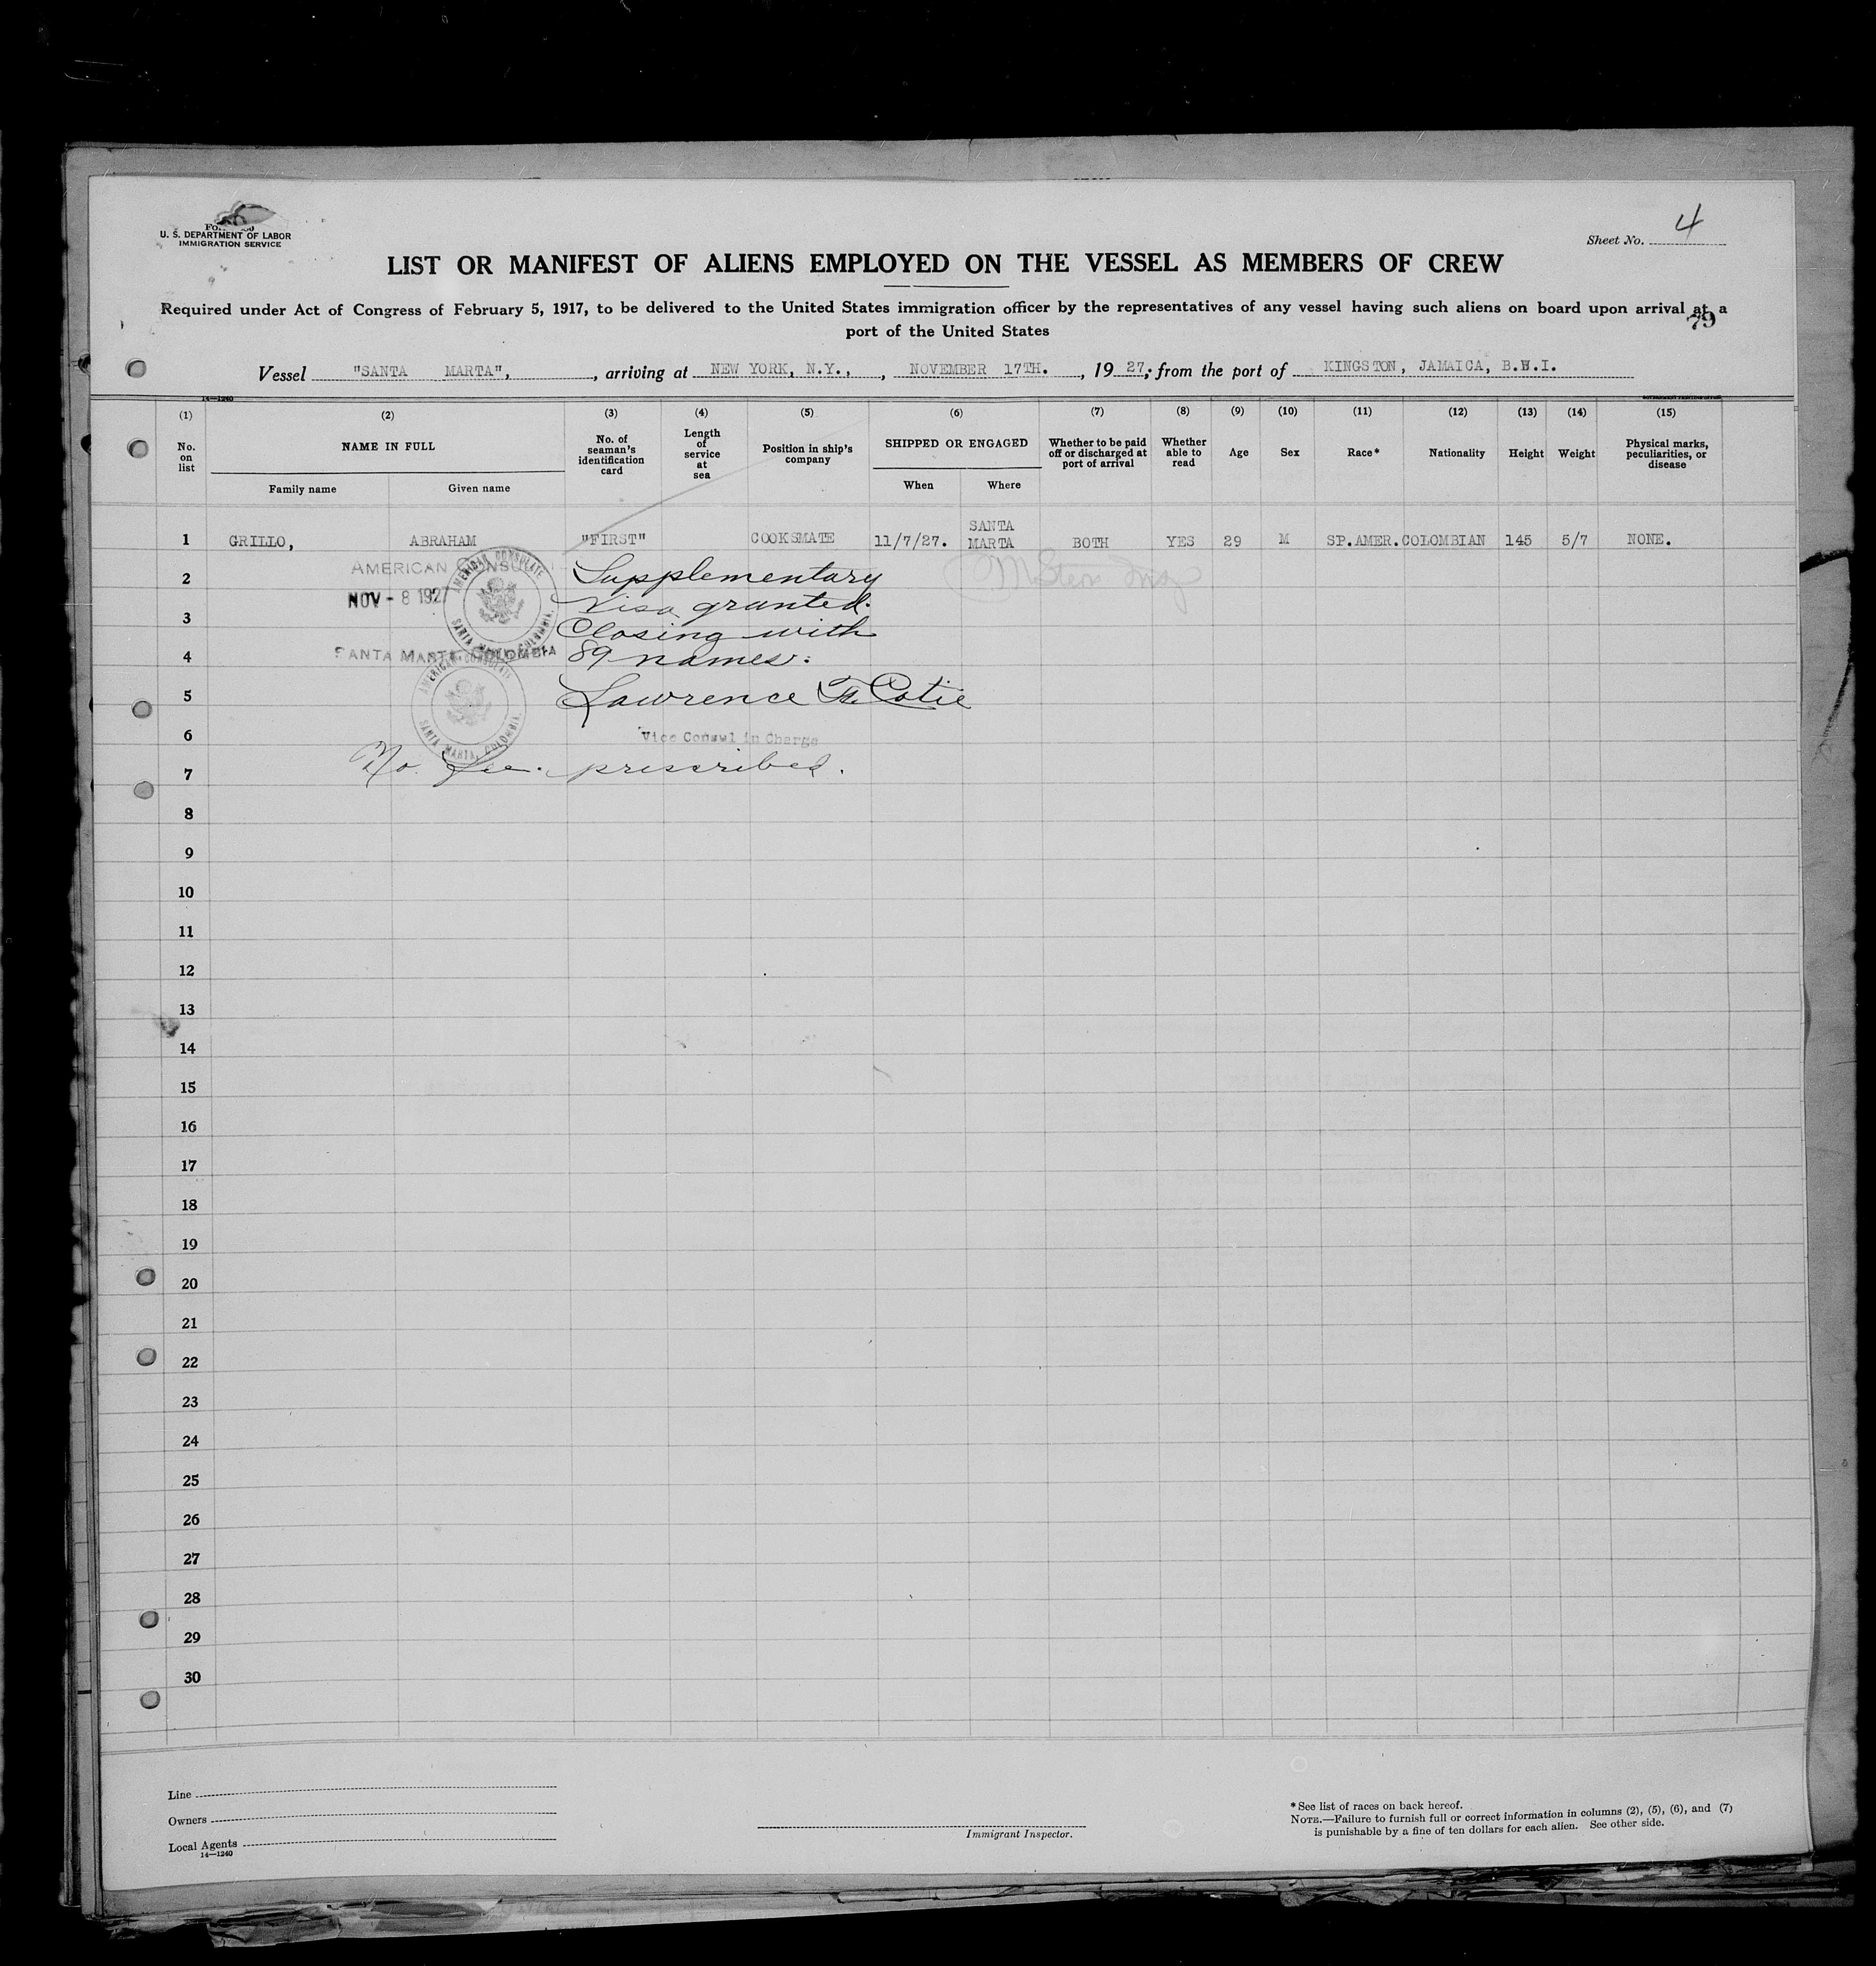 U. S. DEPARTMENT OF LABOR
IMMIGRATION SERVICE
Sheet No. 4
LIST OR MANIFEST OF ALIENS EMPLOYED ON THE VESSEL AS MEMBERS OF CREW
Required under Act of Congress of February 5, 1917, to be delivered to the United States immigration officer by the representatives of any vessel having such aliens on board upon arrival at a
port of the United States
79
Vessel "SANTA MARTA", , arriving at NEW YORK, N.Y., , NOVEMBER 17TH. , 19 27, from the port of KINGSTON, JAMAICA, B.W.I.
14—1240
(1) (2) (3) (4) (5) (6) (7) (8) (9) (10) (11) (12) (13) (14) (15)
No. on list
NAME IN FULL
Family name Given name
No. of seaman's identification card
Length of service at sea
Position in ship's company
SHIPPED OR ENGAGED
When Where
Whether to be paid off or discharged at port of arrival
Whether able to read
Age
Sex
Race*
Nationality
Height
Weight
Physical marks, peculiarities, or disease
1 GRILLO, ABRAHAM "FIRST" COOKSMATE 11/7/27. SANTA MARTA BOTH YES 29 M SP.AMER. COLOMBIAN 145 5/7 NONE.
AMERICAN CONSULATE
AMERICAN CONSULATE SANTA MARTA, COLOMBIA.
2 Supplementary
NOV - 8 192
Visa granted.
3
Closing with
SANTA MARTA, COLOMBIA
4 89 names.
AMERICAN CONSULATE SANTA MARTA, COLOMBIA.
5 Lawrence F. Cotie
6 Vice Consul in Charge
7 No fee prescribed.
8
9
10
11
12
13
14
15
16
17
18
19
20
21
22
23
24
25
26
27
28
29
30
Line
Owners
Local Agents
14—1240
Immigrant Inspector.
*See list of races on back hereof.
NOTE.—Failure to furnish full or correct information in columns (2), (5), (6), and (7)
is punishable by a fine of ten dollars for each alien. See other side.